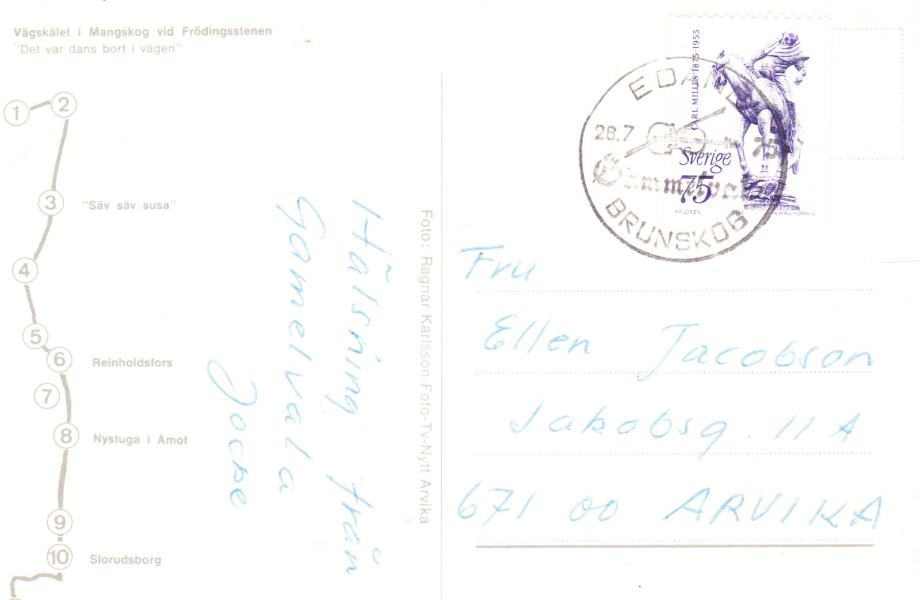 Vägskälet i Mangskog vid Frödingsstenen
"Det var dans bort i vägen"
1
2
3
"Säv säv susa"
4
5
6
Reinholdsfors
7
8
Nystuga i Åmot
9
10
Slorudsborg
Hälsning från
Gamelvala
Jocke
Foto: Ragnar Karlsson Foto-Tv-Nytt Arvika
CARL MILLES 1875-1955
Sverige
75
EDANE
28.7
75
Gammelvala
BRUNSKOG
Fru
Ellen Jacobson
Jakobsg. 11 A
671 00 ARVIKA